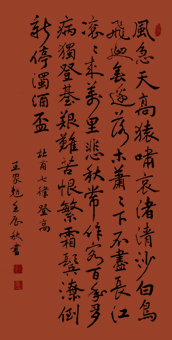 風急天高猿嘯哀渚清沙白鳥
飛迴無邊落木蕭々下不盡長江
滾々來萬里悲秋常作客百年多
病獨登臺艱難苦恨繁霜鬢潦倒
新停濁酒盃
杜甫七律登高
秋書